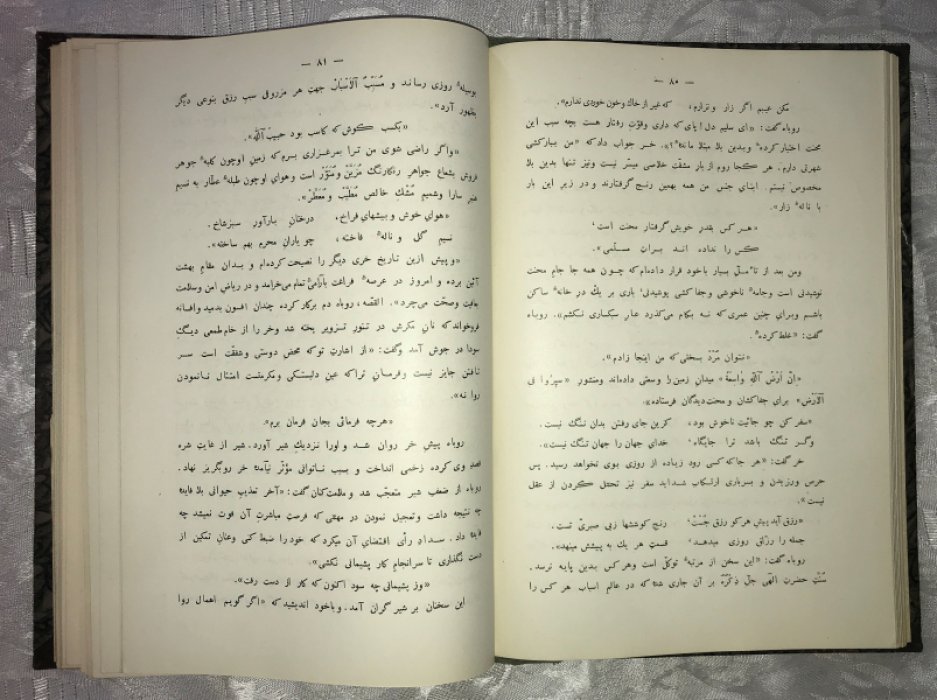 — ۸۰ —
مکن عیبم اگر زار و نزارم، که غیر از خاك وخون خوردی ندارم».
روباه گفت: «ای سلیم دل! پای که داری وقوّتِ رفتار هست بچه سبب این
محنت اختیار کردهٔ وبدین بلا مبتلا ماندهٔ؟». خر جواب داد که «من ببارکشی
شهرتی دارم. هر کجا روم از بارِ مشقّت خلاصی میسّر نیست ونیز تنها بدین بلا
مخصوص نیستم. ابنای جنس من همه بهمین رنج گرفتارند و در زیر این بار
با نالهٔ زار».
«هر کس بقدرِ خویش گرفتار محنت است
کس را نداده اند براتِ مسلّمی».
ومن بعد از تأمّلی بسیار باخود قرار دادهام که چون همه جا جام محنت
نوشیدنی است وجامهٔ ناخوشی وجفا کشی پوشیدنی؛ باری بر یك درِ خانه ساکن
باشم وبرای چنین عمری که نه بکام می‌گذرد عارِ سبکساری نکشم». روباه
گفت: «غلط کردهٔ
«نتوان مُرْدْ بسختی که من اینجا زادم».
«اِنَّ اَرْضَ اللّهِ واسِعَةٌ» میدانِ زمین را وسعتی داده‌اند ومنشورِ «سیرُوا فِی
اَلْاَرْضِ» برای جفاکشان و محنت‌دیدگان فرستاده».
«سفر کن چو جائیت ناخوش بود، کزین جای رفتن بدان ننگ نیست.
وگر تنگ باشد ترا جایگاه، خدای جهان را جهان تنگ نیست».
خر گفت: «هر جا که کسی رود زیاده از روزی بوی نخواهد رسید. پس
حرص ورزیدن و بسرباری ارتکابِ شدایدِ سفر نیز تحمّل کردن از عقل
نیست».
«رزق آید پیشِ هر کو رزق جُسْت، رنجِ کوششها زبی صبریّ تست.
جمله را رزّاق روزی میدهد، قسمتِ هر یك به پیشش مینهد».
روباه گفت: «این سخن از مرتبهٔ توکّل است وهر کس بدین پایه نرسد.
سُنَّتِ حضرتِ الٰهی جَلَّ ذِکْرُهُ بر آن جاری شده که در عالمِ اسباب هر کس را
— ۸۱ —
بوسیلهٔ روزی رساند و مُسَبِّبُ اَلْاَسْبابْ جهتِ هر مرزوقی سببِ رزق بنوعی دیگر
بظهور آرد».
«بکسب کوش که کاسب بود حبیبُ اللّه».
«واگر راضی شوی من ترا بمرغزاری برم که زمینِ اوچون کلبهٔ جوهر
فروش بشعاعِ جواهرِ رنگارنگ مُزَیَّنْ ومُنَوَّر است وهوای اوچون طبلهٔ عطّار به نسیم
عنبرِ سارا وشمیمِ مُشْكِ خالص مُطَیَّبْ ومُعَطَّرْ».
«هوای خوش و بیشهای فراخ، درختانِ بارآورِ سبزشاخ.
نسیمِ گل و نالهٔ فاخته، چو یارانِ محرم بهم ساخته».
«و پیش ازین تاریخ خری دیگر را نصیحت کرده‌ام و بدان مقامِ بهشت
آئین برده و امروز در عرصهٔ فراغت بآرامیِ تمام می‌خرامد و در ریاضِ امن وسلامت
عافیت وصحّت می‌چرد». القصّه، روباه دم برکار کرده چندان افسون بدمید وافسانه
فروخواند که نانِ مکرش در تنورِ تزویر پخته شد وخر را از خام طمعی دیگِ
سودا در جوش آمد وگفت: «از اشارتِ تو که محضِ دوستی وشفقت است سر
تافتن جایز نیست وفرمانِ ترا که عینِ دلبستگی ومکرمتست امتثال نانمودن
روا نه».
«هرچه فرمائی بجان فرمان برم».
روباه پیشِ خر روان شد و اورا نزدیكِ شیر آورد. شیر از غایتِ شره
قصدِ وی کرده زخمی انداخت و بسببِ ناتوانی مؤثّر نیامد؛ خر روبگریز نهاد.
روباه از ضعفِ شیر متعجّب شد و ملامت‌کنان گفت: «آخر تعذیبِ حیوانی بلا فایده
چه نتیجه داشت وتعجیل نمودن در مهمّی که فرصتِ مباشرتِ آن فوت نمیشد چه
فایده داد. سدادِ رأی اقتضای آن میکرد که خود را ضبط کنی وعنانِ تمکین از
دست نگذاری تا سرانجامِ کار پشیمانی نکشی».
«وز پشیمانی چه سود اکنون که کار از دست رفت».
این سخنان بر شیر گران آمد. وباخود اندیشید که «اگر گویم اهمال روا